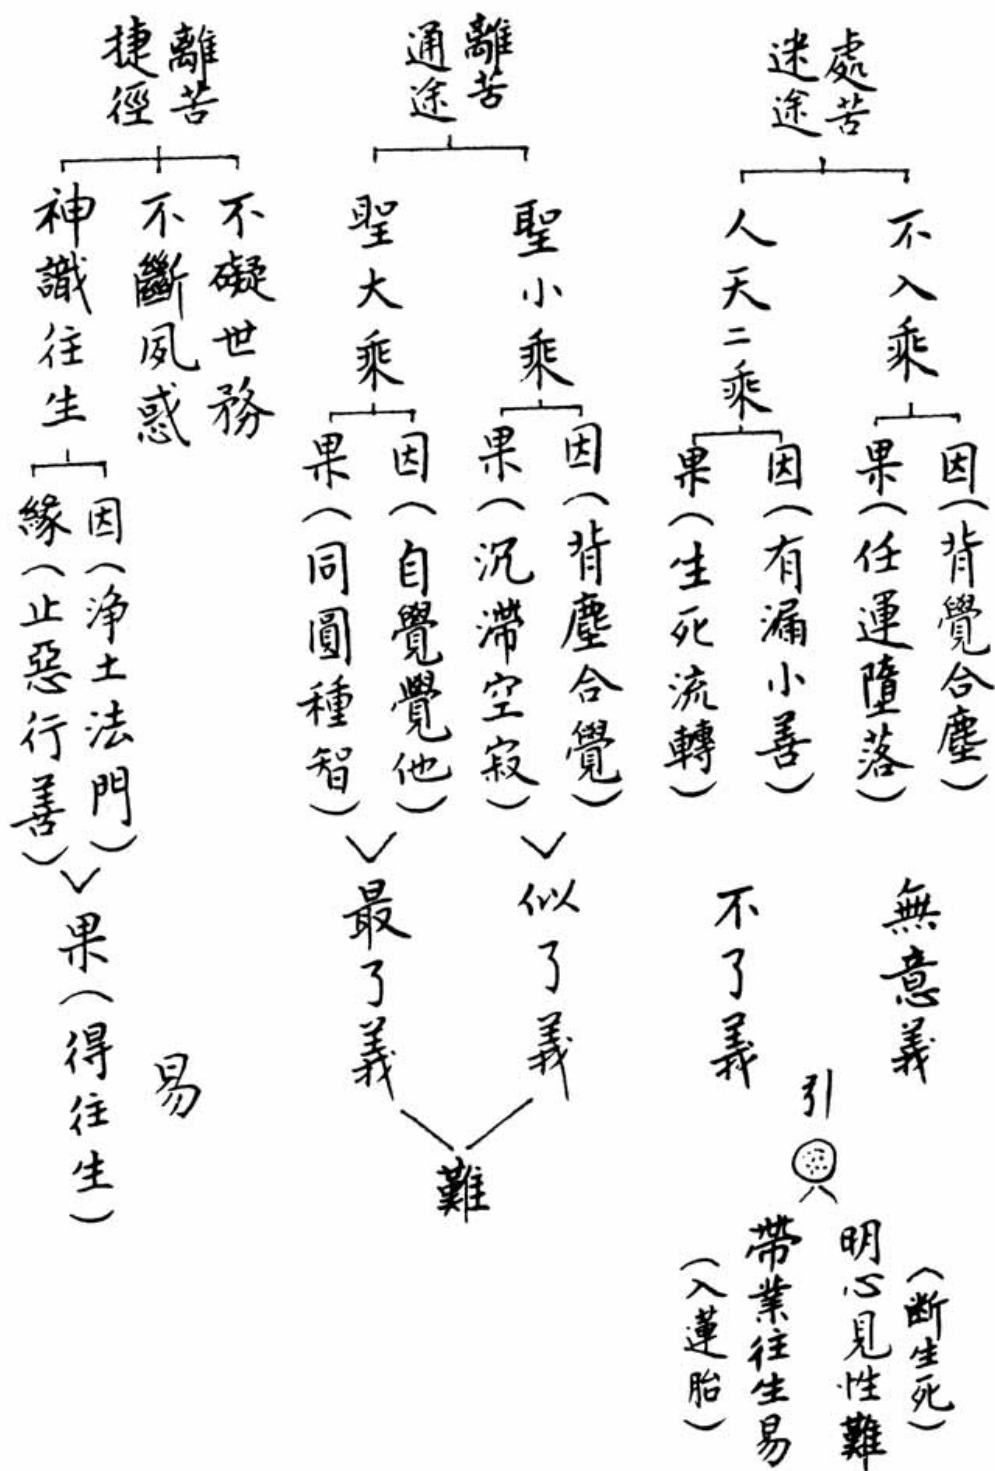 處苦
迷途
不入乘
因（背覺合塵）
果（任運墮落）
無意義
人天二乘
因（有漏小善）
果（生死流轉）
不了義
引
明心見性難
（断生死）
帶業往生易
（入蓮胎）
離苦
通途
聖小乘
因（背塵合覺）
果（沉滯空寂）
似了義
聖大乘
因（自覺覺他）
果（同圓種智）
最了義
難
離苦
捷徑
不礙世務
不斷夙惑
神識往生
因（净土法門）
緣（止惡行善）
果（得往生）
易